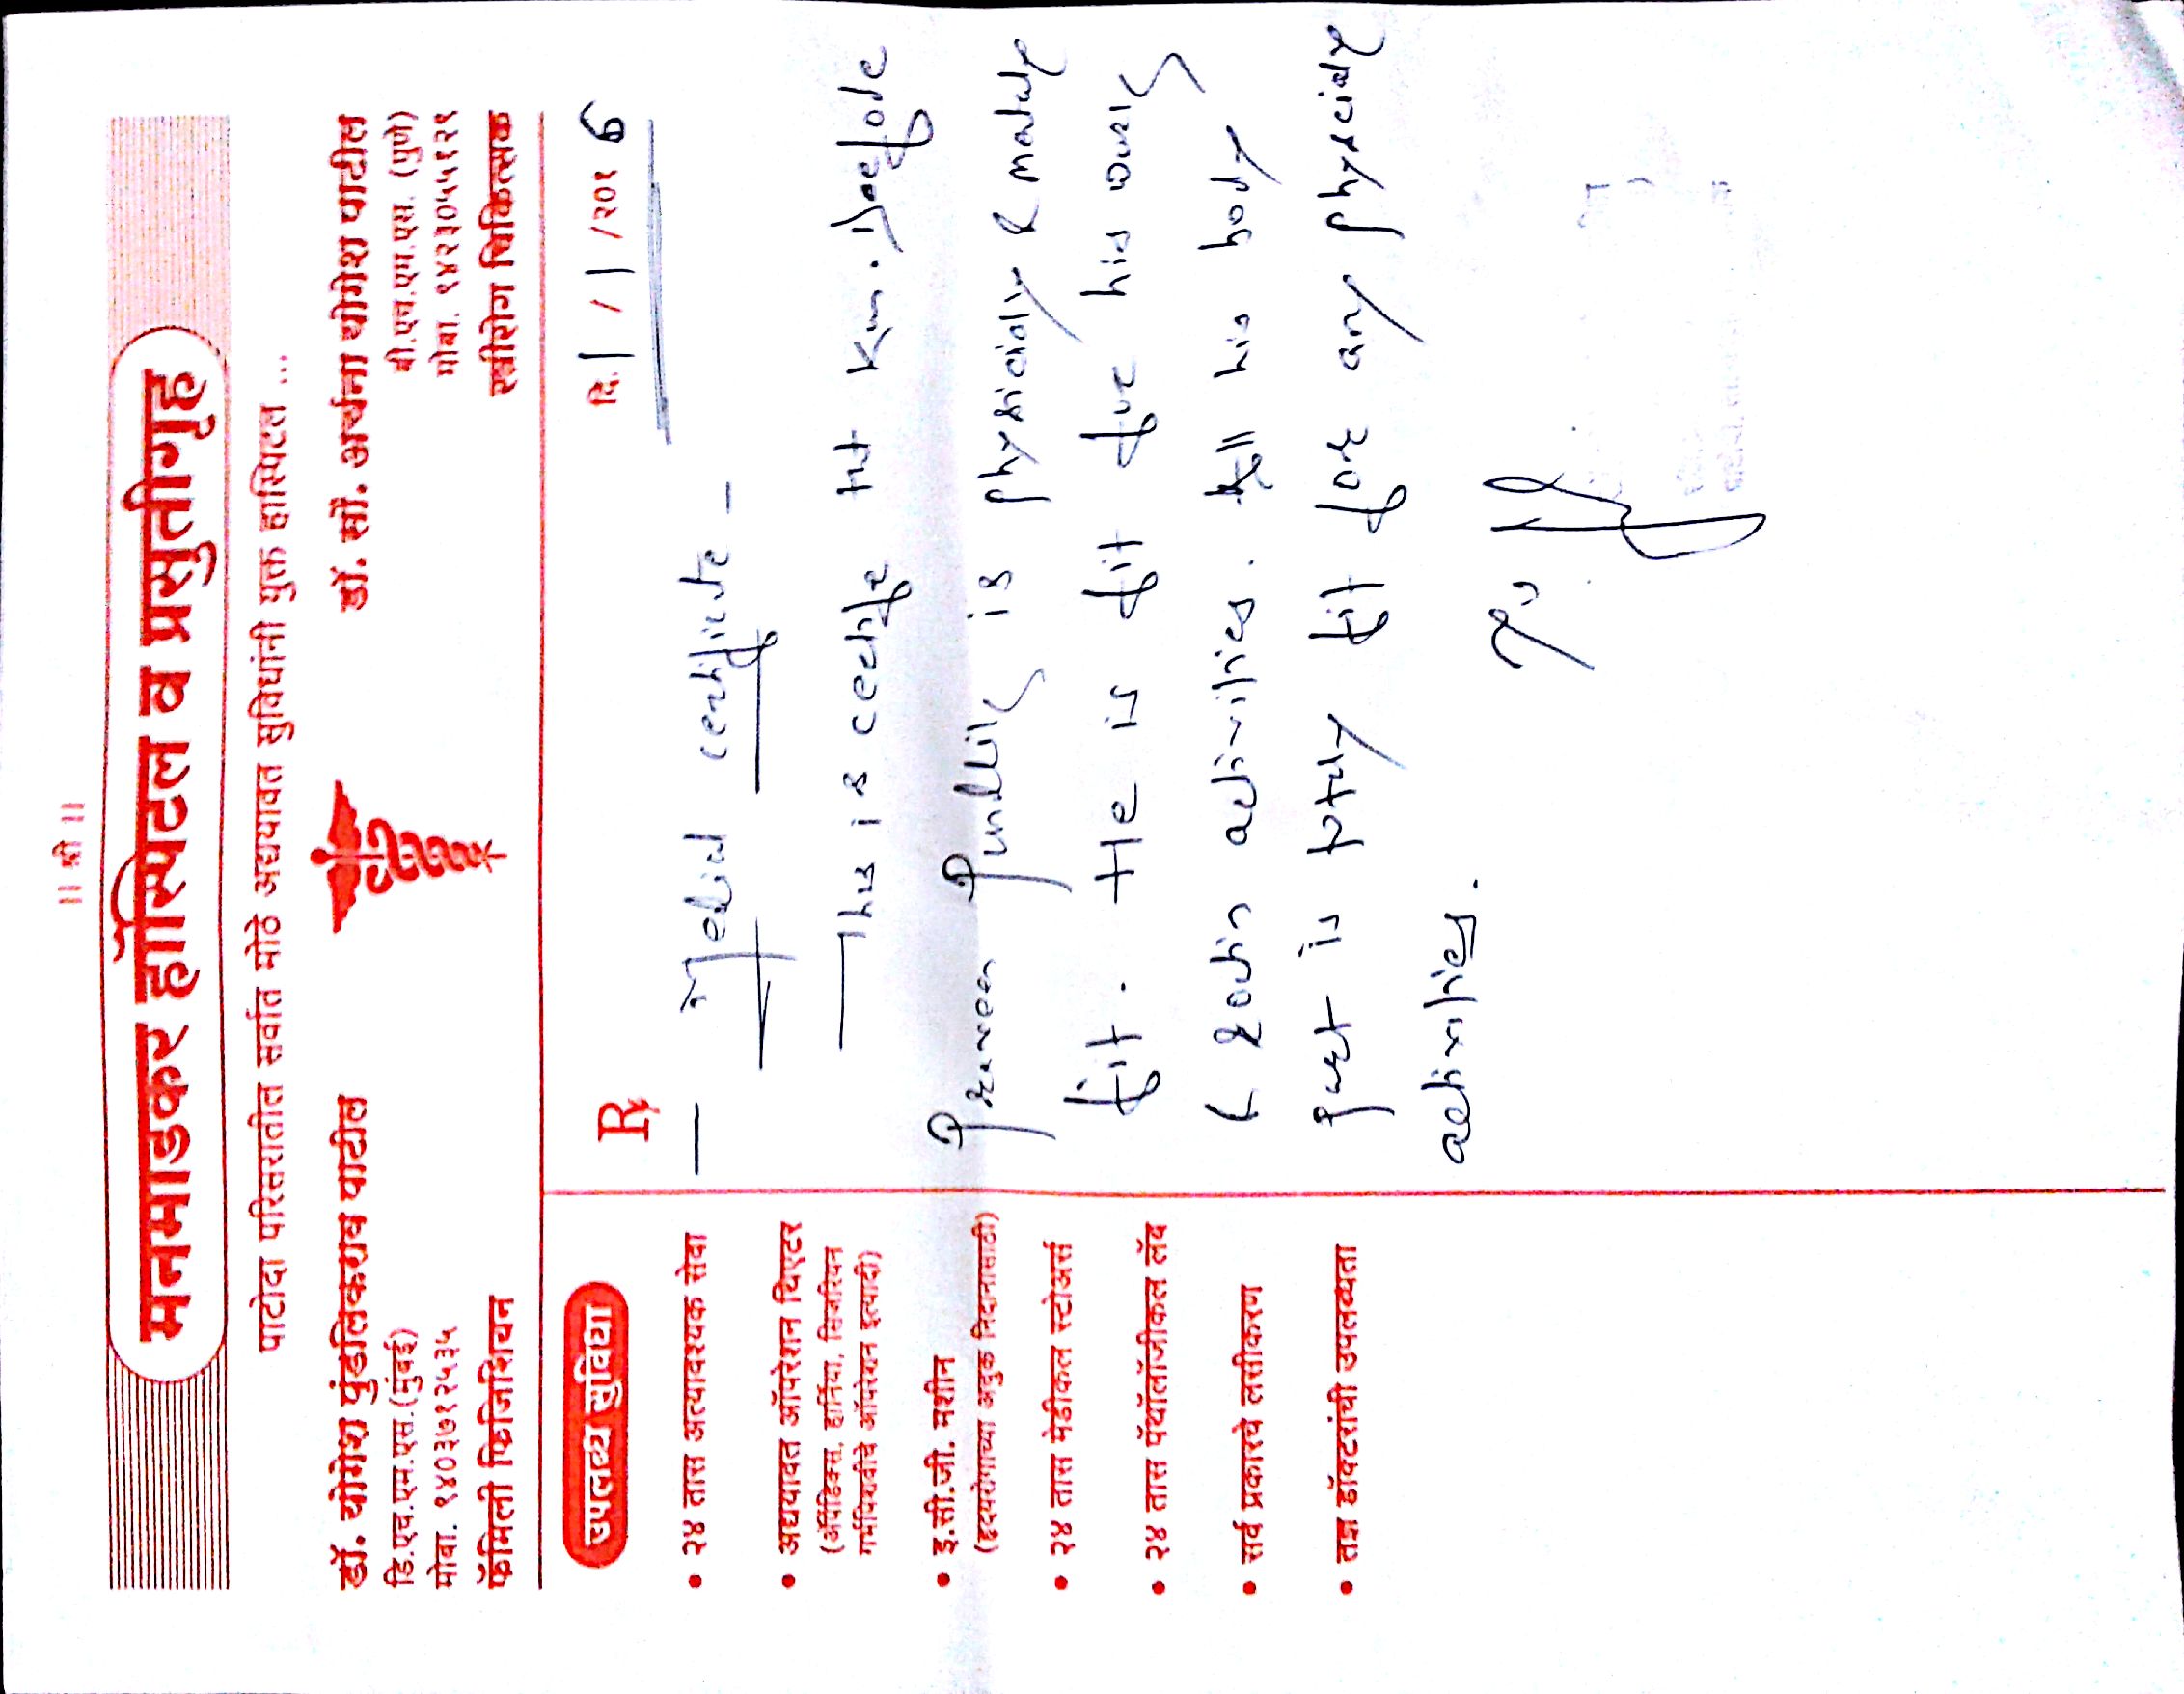 ॥ श्री ॥
मनमाडकर हॉस्पिटल व प्रसुतीगृह
पाटोदा परिसरातील सर्वात मोठे अद्ययावत सुविधांनी युक्त हास्पिटल ...
डॉ. योगेश पुंडलिकराव पाटील
डि.एच.एम.एस.(मुंबई)
मोबा. ९४०३७१२५३५
फॅमिली फिजिशियन
डॉ. सौ. अर्चना योगेश पाटील
बी.एच.एम.एस. (पुणे)
मोबा. ९४२३०५५१२९
स्त्रीरोग चिकित्सक
उपलब्ध सुविधा
• २४ तास अत्यावश्यक सेवा
• अद्ययावत ऑपरेशन थिएटर
(अ‍ॅपेंडिक्स, हार्निया, सिजेरियन
गर्भपिशवीचे ऑपरेशन इत्यादी)
• इ.सी.जी. मशीन
(हृदयरोगाच्या अचुक निदानासाठी)
• २४ तास मेडीकल स्टोअर्स
• २४ तास पॅथॉलॉजीकल लॅब
• सर्व प्रकारचे लसीकरण
• तज्ञ डॉक्टरांची उपलब्धता
Rx
दि. 1 / 1 / २०१ 6
- Medical certificate -
This is certify that Km.
is physicialy &
fit. He is fit for his work
& activities. All his body
part is fit for any physicial
activities.